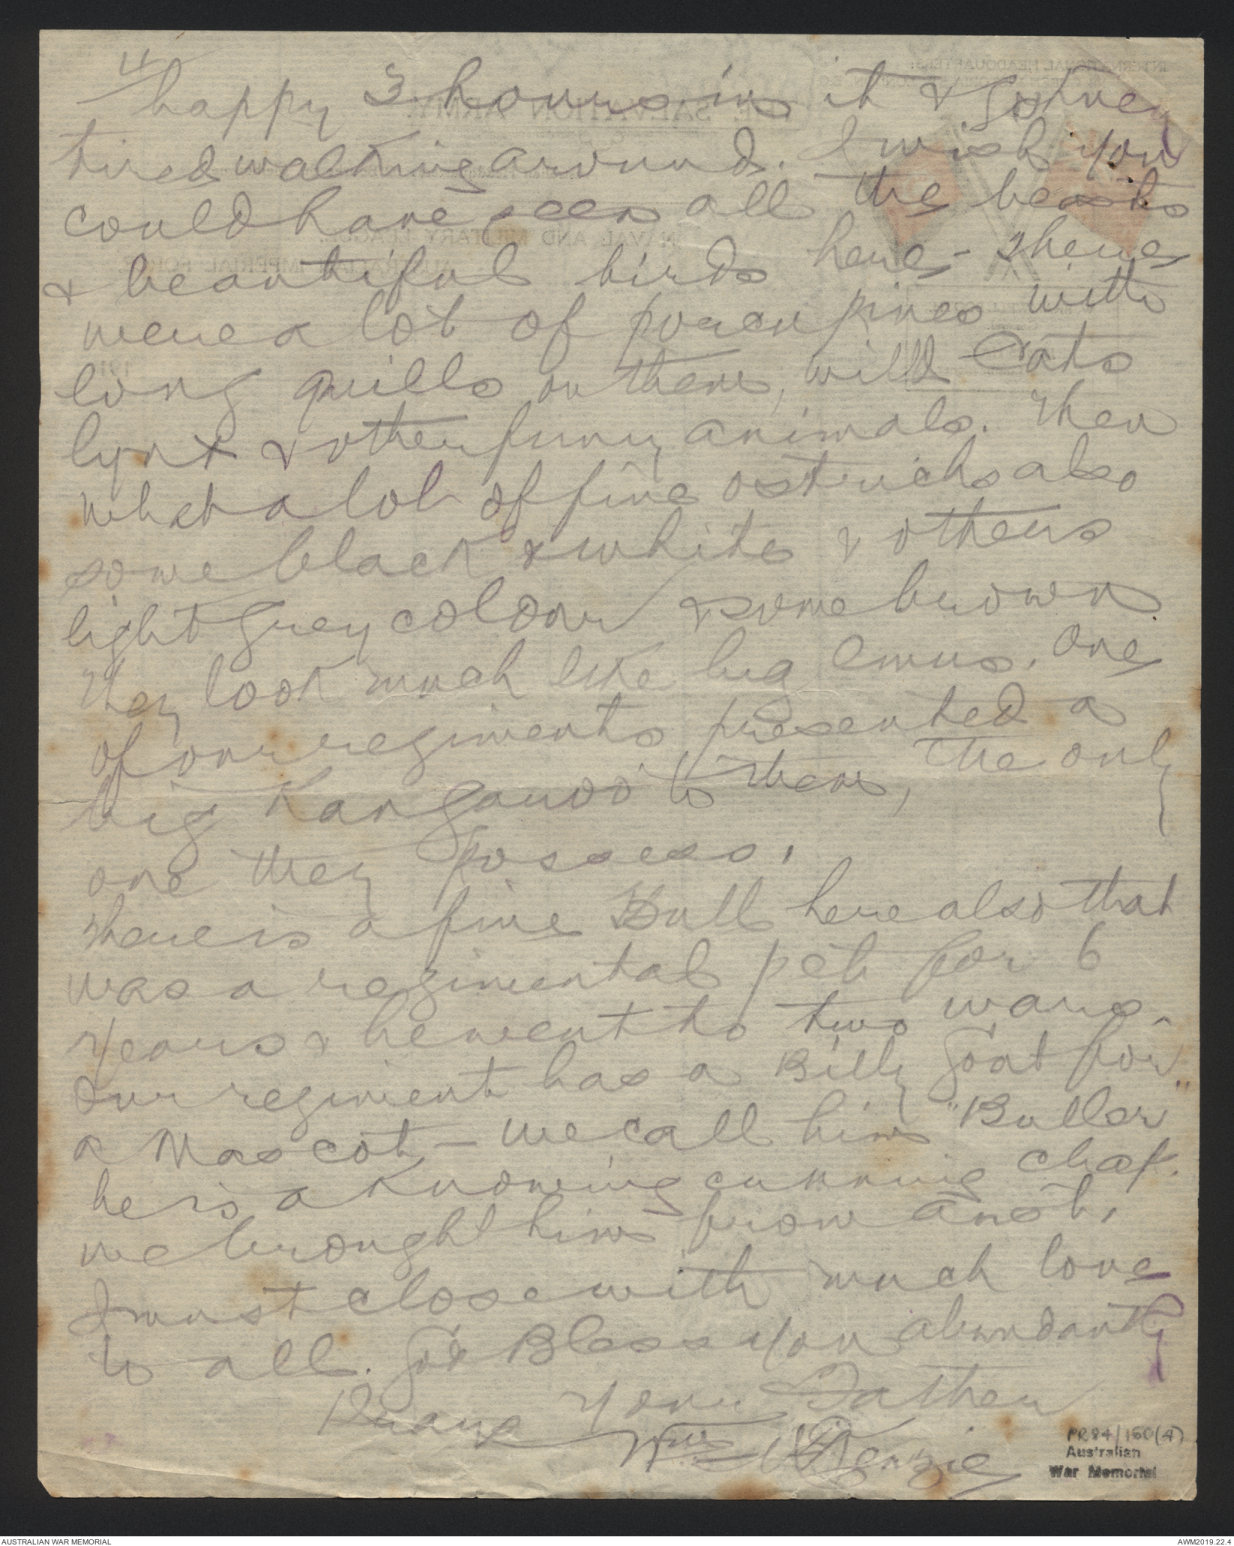 4/
happy 3 hours in it & got very
tired walking around. I wish you
could have seen all the beasts
& beautiful birds here - there
were a lot of porcupines with
long quills on them, wild Cats
lynx & other funny animals. Then
what a lot of fine ostrichs also
some black & white & others
light grey colour & some brown.
They look much like big Emus. One
of our regiments presented a
big Kangaroo to them, the only
one they possess.
There is a fine Bull here also that
was a regimental pet for 6
years & he went to two wars.
Our regiment has a Billy Goat for
a Mascot - We call him "Buller"
he is a knowing cunning chap.
we brought him from Aust.
I must close with much love
to all. God Bless you abundantly
Your Father
Wm McKenzie
PR84/150(4)
Australian
War Memorial
AUSTRALIAN WAR MEMORIAL
AWM2019.22.4